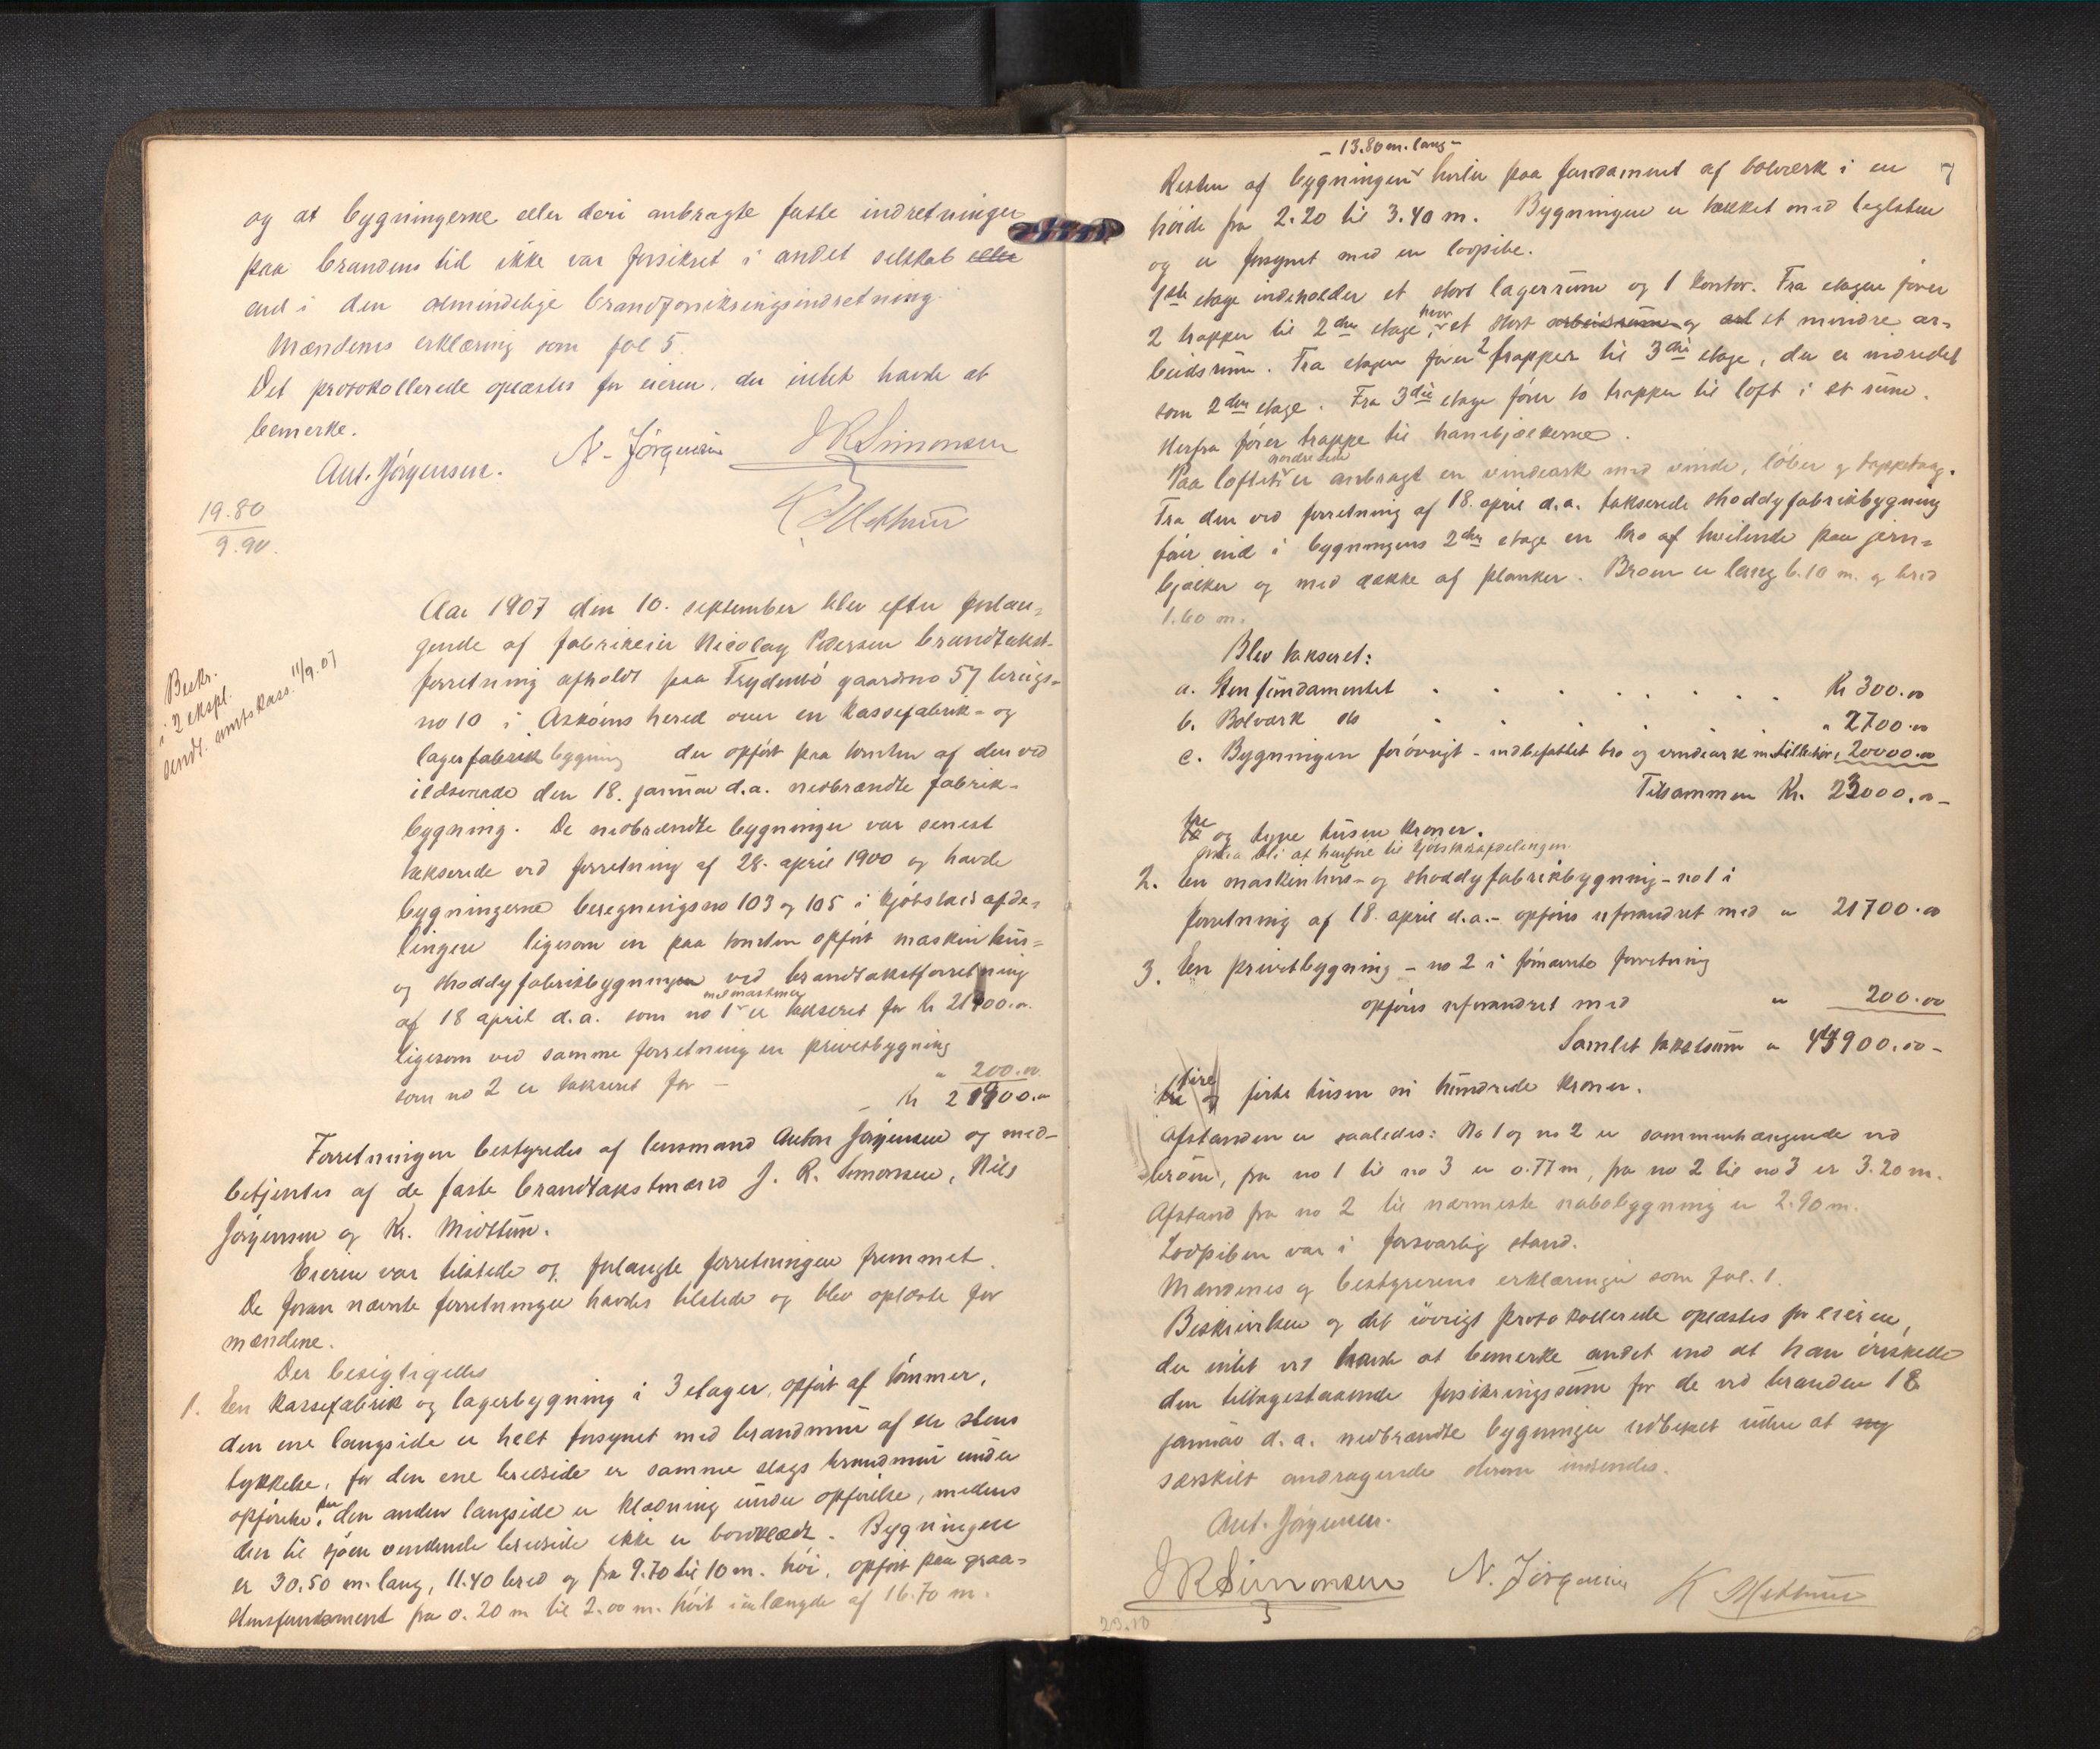 og at bygningerne eller deri anbragte faste indretninger
paa brandens tid ikke var forsikret i andet selskab eller
end i den almindelige brandforsikringsindretning.
Mændenes erklæring som fol 5.
Det protokollerede oplæstes for eieren, der intet havde at
bemerke.
Ant. Jørgensen. N. Jørgensen J R Simonsen
K Midttun
19.80
9.90.
Aar 1907 den 10. september blev efter forlan=
gende af fabrikeier Nicolay Pedersen brandtakst-
forretning afholdt paa Frydenbø gaardsno 57 brugs-
no 10 i Askøens hered over en kassefabrik- og
lagerfabrikbygning der opført paa tomten af den ved
ildsvaade den 18. januar d.a. nedbrændte fabrik-
bygning. De nedbrændte bygninger var senest
takserede ved forretning af 28. april 1900 og havde
bygningerne beregningsno 103 og 105 i kjøbstadsafde-
lingen ligesom en paa tomten opført maskinhus=
og shoddyfabrikbygningen ved brandtakstforretning
af 18 april d.a. som no 1 med maskiner er takseret for kr 21700.00.
ligesom ved samme forretning en privetbygning
som no 2 er takseret for — " 200.00
kr 21900.00
Bekr.
i 2 ekspl.
sendt. amtskass. 11/9.07
Forretningen bestyredes af lensmand Anton Jørgensen og med-
betjentes af de faste brandtakstmænd J. R. Simonsen, Nils
Jørgensen og Kr. Midttun.
Eieren var tilstede og forlangte forretningen fremmet.
De foran nævnte forretninger havdes tilstede og blev oplæste for
mændene.
Der besigtigedes
1. En kassefabrik og lagerbygning i 3 etager, opført af tømmer,
den ene langside er helt forsynet med brandmur af en stens
tykkelse, for den ene bredside er samme slags brandmur under
opførelse, for den anden langside er klædning under opførelse, medens
den til sjøen vendende bredside ikke er bordklædt. Bygningen
er 30.50 m. lang, 11.40 bred og fra 9.70 til 10 m. høi, opført paa graa=
stensfundament fra 0.20 m til 2.00 m. høit i en længde af 16.70 m.
7
- 13.80 m. lang -
Resten af bygningen hviler paa fundament af bolværk i en
høide fra 2.20 til 3.40 m. Bygningen er tækket med teglsten
og er forsynet med en lodpibe.
1ste etage indeholder et stort lagerrum og 1 kontor. Fra etagen fører
2 trapper til 2den etage, hvor et stort arbeidsrum og et mindre ar-
beidsrum. Fra etagen fører 2 trapper til 3die etage, der er indredet
som 2den etage. Fra 3die etage fører to trapper til loft i et rum.
Herfra fører trappe til hanebjælkerne.
Paa loftets nordre side er anbragt en vindeark med vinde, løber og tappetoug.
Fra den ved forretning af 18. april d.a. takserede shoddyfabrikbygning
fører ind i bygningens 2den etage en bro af hvilende paa jern=
bjælker og med dække af planker. Broen er lang 6.10 m. og bred
1.60 m.
Blev takseret:
a. Stenfundamentet . . . . . . . . Kr 300.00
b. Bolværk do . . . . . . " 2700.00
c. Bygningen forøvrigt - indbefattet bro og vindeark m. tilbehør, 20000.00
Tilsammen Kr. 23000.00 -
tre og tyve tusen kroner.
2. En maskinhus- og shoddyfabrikbygning - no 1 i
forretning af 18. april d.a. - opføres uforandret med " 21700.00
3. En privetbygning - no 2 i førnævnte forretning
opføres uforandret med " 200.00
Samlet takstsum " 44900.00 -
fire og førti tusen ni hundrede kroner.
Afstanden er saaledes: No 1 og no 2 er sammenhængende ved
broen, fra no 1 til no 3 er 0.77 m, fra no 2 til no 3 er 3.20 m.
Afstand fra no 2 til nærmeste nabobygning er 2.90 m.
Lodpiben var i forsvarlig stand.
Mændenes og bestyrerens erklæringer som fol. 1.
Beskrivelsen og det øvrigt protokollerede oplæstes for eieren,
der intet ved havde at bemerke andet end at han ønskede
den tilbagestaaende forsikringssum for de ved branden 18
januar d.a. nedbrændte bygninger udbetalt uden at ny
særskilt andragende derom indsendes.
Ant. Jørgensen.
J R Simonsen N. Jørgensen K Midttun